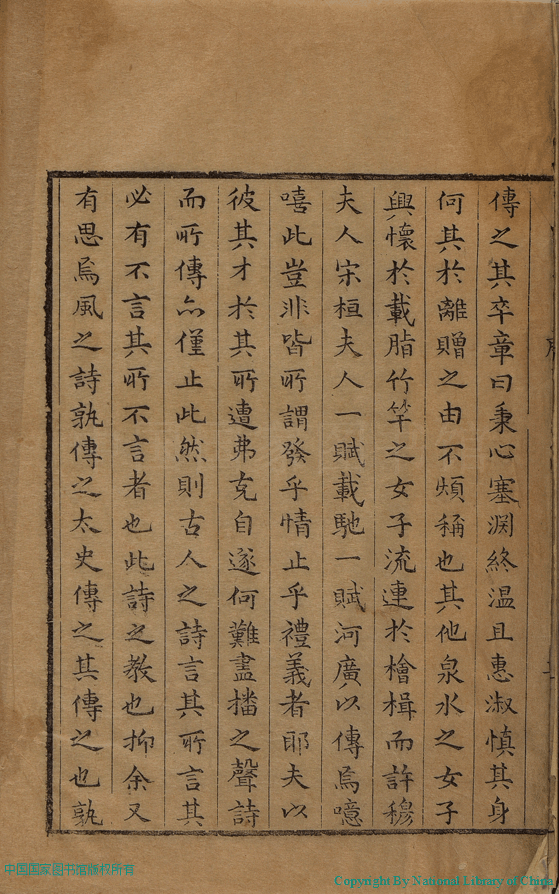 傳之其卒章曰秉心塞淵終温且惠淑慎其身
何其於離贈之由不煩稱也其他泉水之女子
興懷於載脂竹竿之女子流連於檜楫而許穆
夫人宋桓夫人一賦載馳一賦河廣以傳焉噫
嘻此豈非皆所謂發乎情止乎禮義者耶夫以
彼其才於其所遭弗克自遂何難盡播之聲詩
而所傳亦僅止此然則古人之詩言其所言其
必有不言其所不言者也此詩之教也抑余又
有思焉風之詩孰傳之太史傳之其傳之也孰
中国国家图书馆版权所有
Copyright By National Library of China